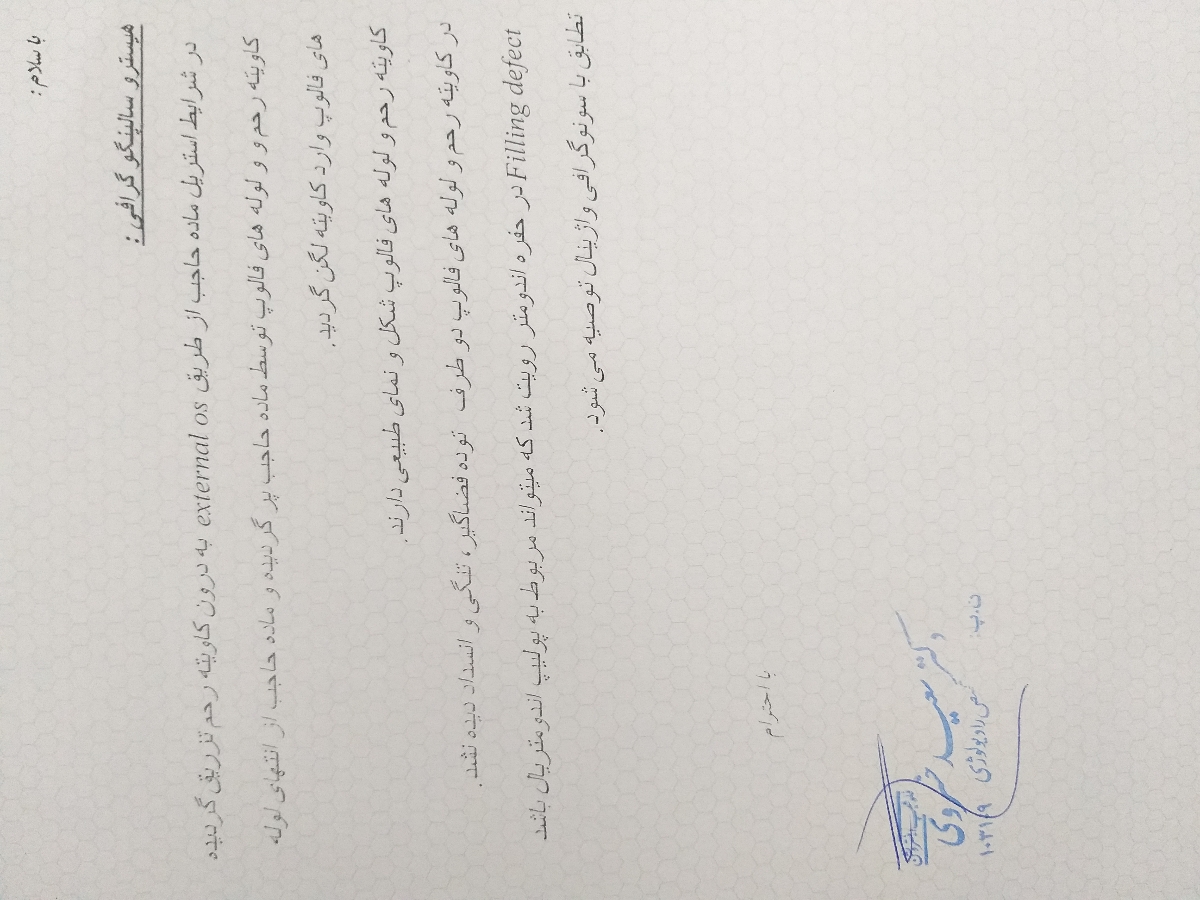 با سلام :
هیسترو سالپنگو گرافی :
در شرایط استریل ماده حاجب از طریق external os به درون کاویته رحم تزریق گردیده
کاویته رحم و و لوله های فالوپ توسط ماده حاجب پر گردیده و ماده حاجب از انتهای لوله
های فالوپ وارد کاویته لگن گردید.
کاویته رحم و لوله های فالوپ شکل و نمای طبیعی دارند.
در کاویته رحم و لوله های فالوپ دو طرف توده فضاگیر، تنگی و انسداد دیده نشد.
Filling defect در حفره اندومتر رویت شد که میتواند مربوط به پولیپ اندومتریال باشد
تطابق با سونوگرافی واژینال توصیه می شود.
با احترام
دکتر سعید خسروی
رادیولوژی
ن.پ: ۱۰۳۱۶۹